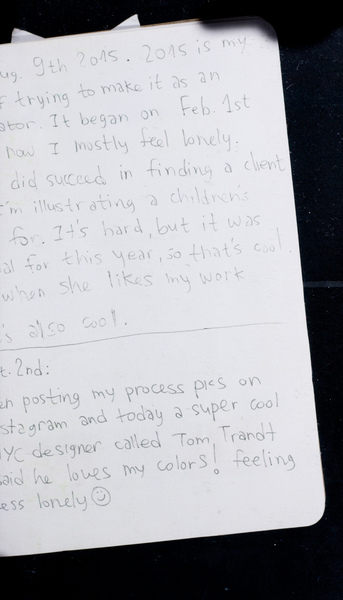 ug. 9th 2015. 2015 is my
f trying to make it as an
ator. It began on Feb. 1st
now I mostly feel lonely.
did succeed in finding a client
I'm illustrating a children's
for. It's hard, but it was
al for this year, so that's cool.
when she likes my work
's also cool.
t. 2nd:
en posting my process pics on
stagram and today a super cool
NYC designer called Tom Trandt
said he loves my colors! feeling
ess lonely ☺